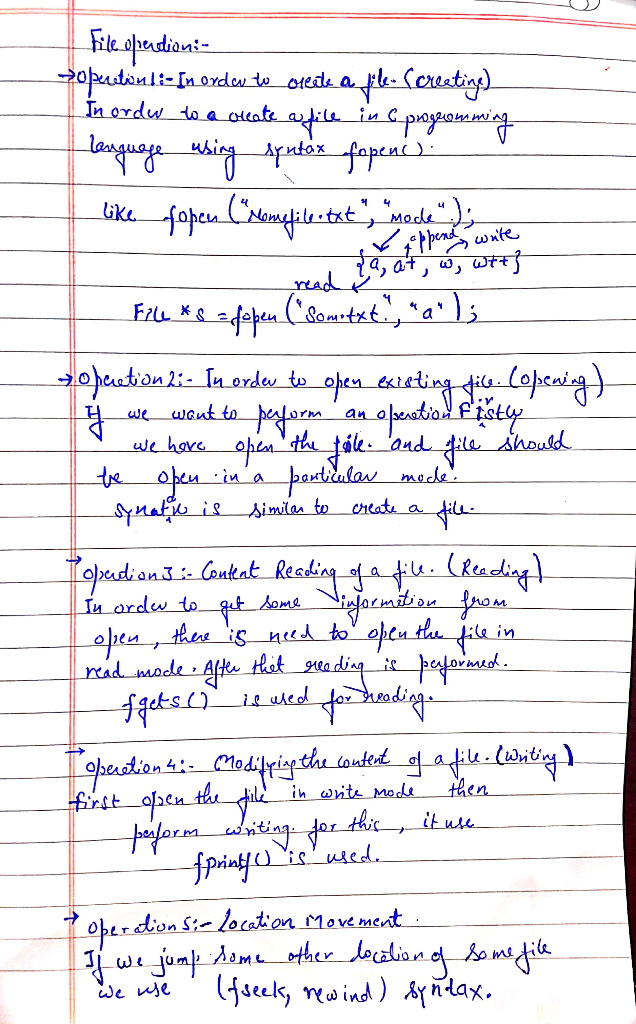 File operation:-
→Operation1:- In order to create a file. (creating)
In order to a create a file in C programming
language using syntax fopen().
like fopen ("Nomefile.txt", "mode");
append write
{a, at, w, wtt}
read
FILE *s = fopen ("Som.txt.", "a");
→Operation 2:- In order to open existing file. (opening)
If we want to perform an operation Firstly
we have open the file. and file should
be open in a particular mode.
Synatx is similar to create a file.
→Operation 3:- Content Reading of a file. (Reading)
In order to get some information from
open, there is need to open the file in
read mode. After that reading is performed.
fgets() is used for reading.
→Operation 4:- Modifying the content of a file. (writing)
first open the file in write mode then
perform writing. for this, it use
fprintf() is used.
→Operation 5:- Location Movement.
If we jump some other location of some file
we use (fseek, rewind) syntax.